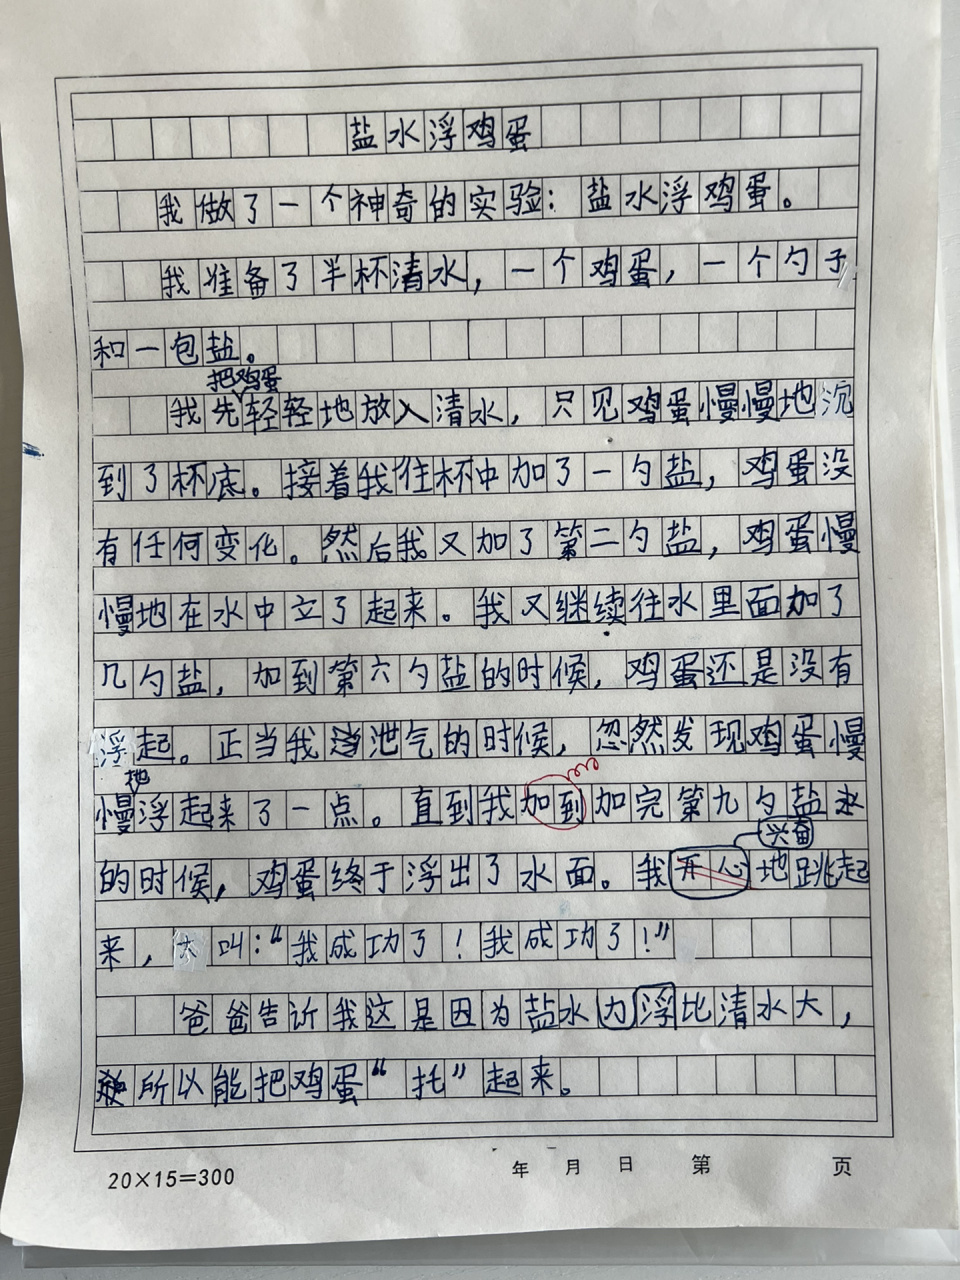 盐水浮鸡蛋
我做了一个神奇的实验：盐水浮鸡蛋。
我准备了半杯清水，一个鸡蛋，一个勺子
和一包盐。
把鸡蛋
我先轻轻地放入清水，只见鸡蛋慢慢地沉
到了杯底。接着我往杯中加了一勺盐，鸡蛋没
有任何变化。然后我又加了第二勺盐，鸡蛋慢
慢地在水中立了起来。我又继续往水里面加了
几勺盐，加到第六勺盐的时候，鸡蛋还是没有
浮起。正当我泄气的时候，忽然发现鸡蛋慢
地
慢浮起来了一点。直到我加到加完第九勺盐
兴奋
的时候，鸡蛋终于浮出了水面。我开心地跳起
来，大叫：“我成功了！我成功了！”
爸爸告诉我这是因为盐水力浮比清水大，
所以能把鸡蛋“托”起来。
20×15=300 年 月 日 第 页